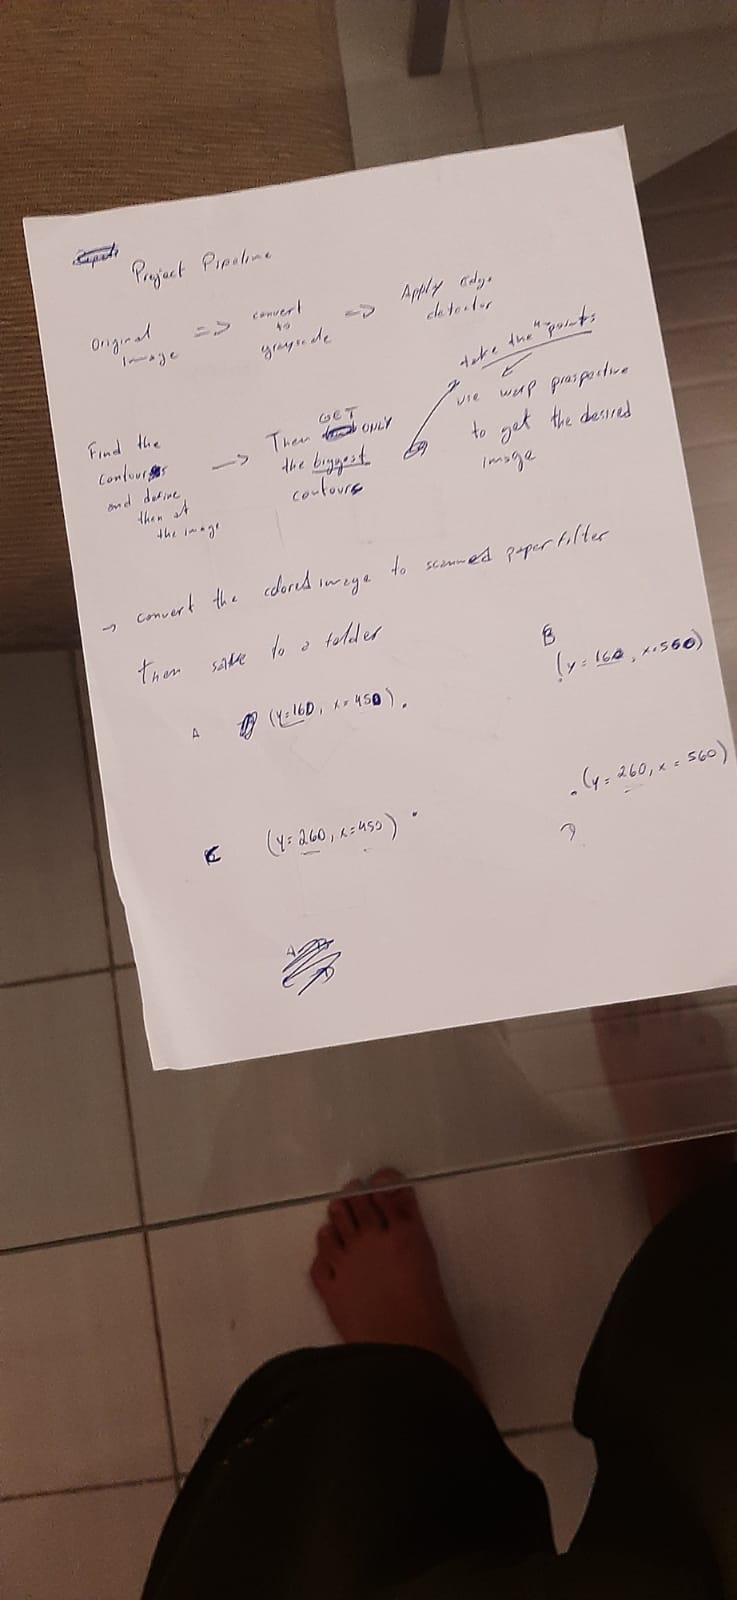 Project Pipeline
Original
Image
=>
convert
to
grayscale
=>
Apply Edge
detector
Find the
contours
and define
then at
the image
->
Then GET ONLY
the biggest
contours
take the 4 points
use warp praspective
to get the desired
image
-> convert the colored image to scanned paper filter
then save to a folder
A (y=160, x=450).
B
(y=160, x=560)
C (y=260, x=450)
.(y=260, x=560)